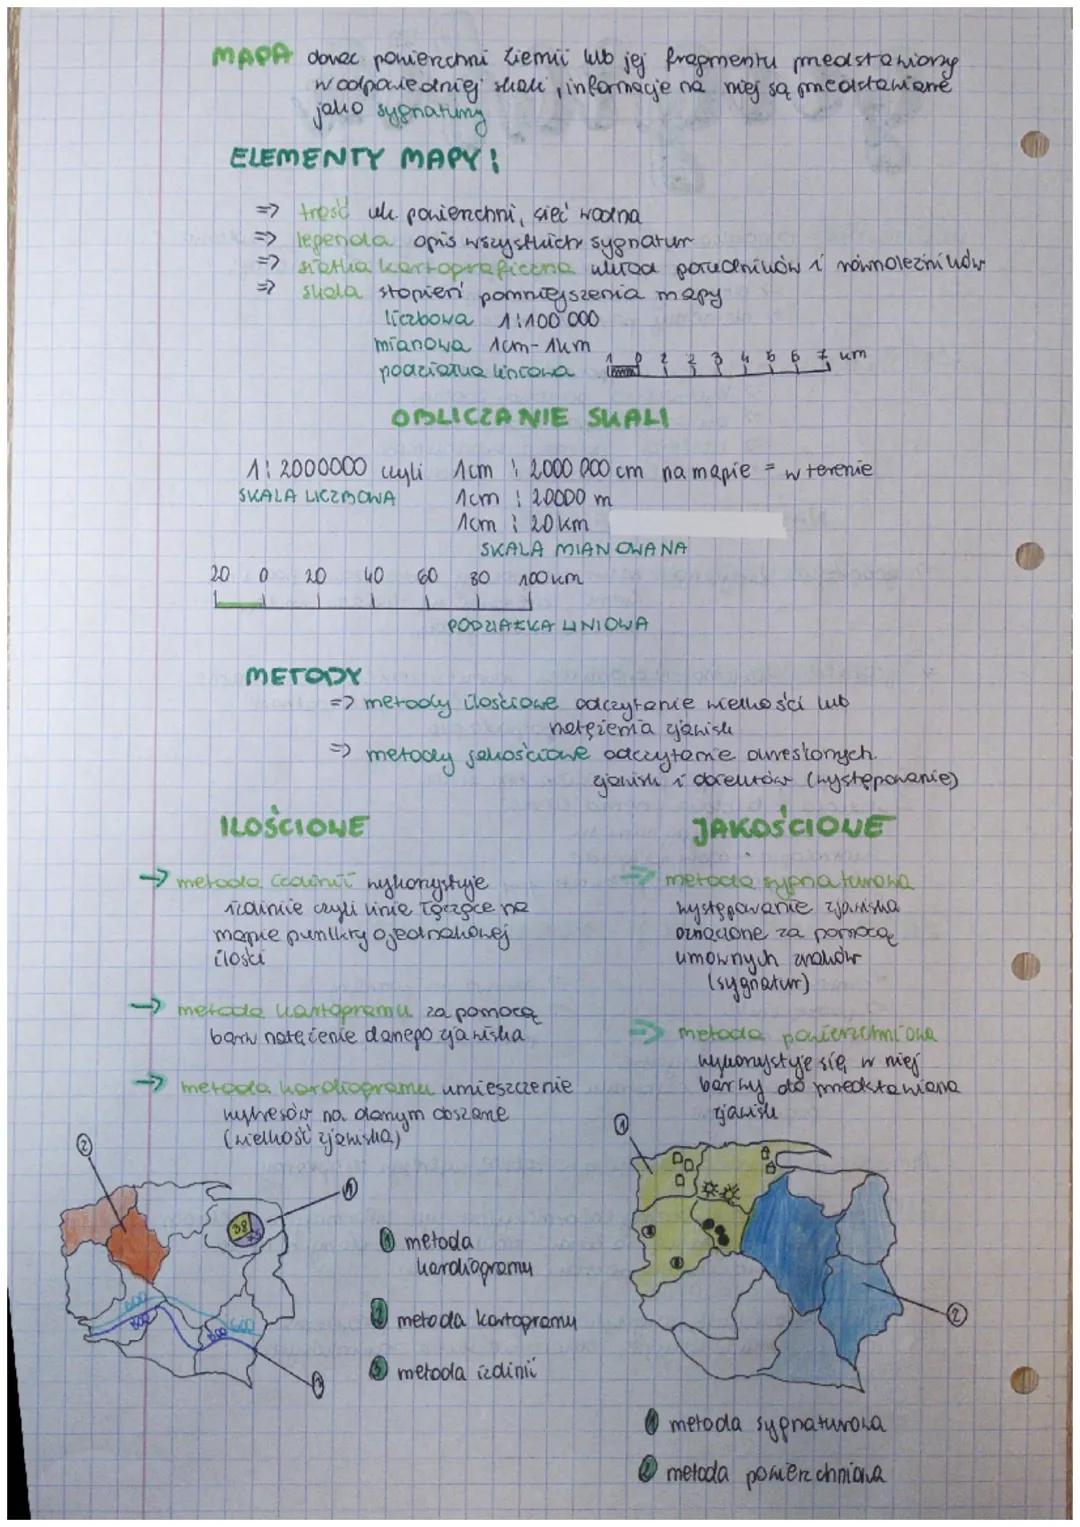 MAPA obraz powierzchni Ziemii lub jej fragmentu przedstawiony
w odpowiedniej skali, informacje na niej są przedstawiane
jako sygnatury
ELEMENTY MAPY:
=> treść ukł. powierzchni, sieć wodna
=> legenda opis wszystkich sygnatur
=> siatka kartograficzna układ południków i równoleżników
=> skala stopień pomniejszenia mapy
liczbowa 1:100 000
mianowa 1cm-1km
podziałka liniowa 1 0 2 2 3 4 5 6 7 km
OBLICZANIE SKALI
1:2000000 czyli 1cm : 2000 000 cm na mapie = w terenie
SKALA LICZBOWA 1cm : 20000 m
1cm : 20 km
SKALA MIANOWANA
20 0 20 40 60 80 100 km
PODZIAŁKA LINIOWA
METODY
=> metody ilościowe odczytanie wielkości lub
natężenia zjawisk
=> metody jakościowe odczytanie określonych
zjawisk i obiektów (występowanie)
ILOŚCIOWE
→ metoda izolinii wykorzystuje
izolinie czyli linie łączące na
mapie punkty o jednakowej
ilości
→ metoda kartogramu za pomocą
barw natężenie danego zjawiska
→ metoda kardiogramu umieszczenie
wykresów na danym obszarze
(wielkość zjawiska)
JAKOŚCIOWE
=> metoda sygnaturowa
występowanie zjawiska
oznaczone za pomocą
umownych znaków
(sygnatur)
=> metoda powierzchniowa
wykorzystuje się w niej
barwy do przedstawiania
zjawisk
2
1
38
600
800
800
600
3
1 metoda
kardiogramu
2 metoda kartogramu
3 metoda izolinii
1
2
1 metoda sygnaturowa
2 metoda powierzchniowa